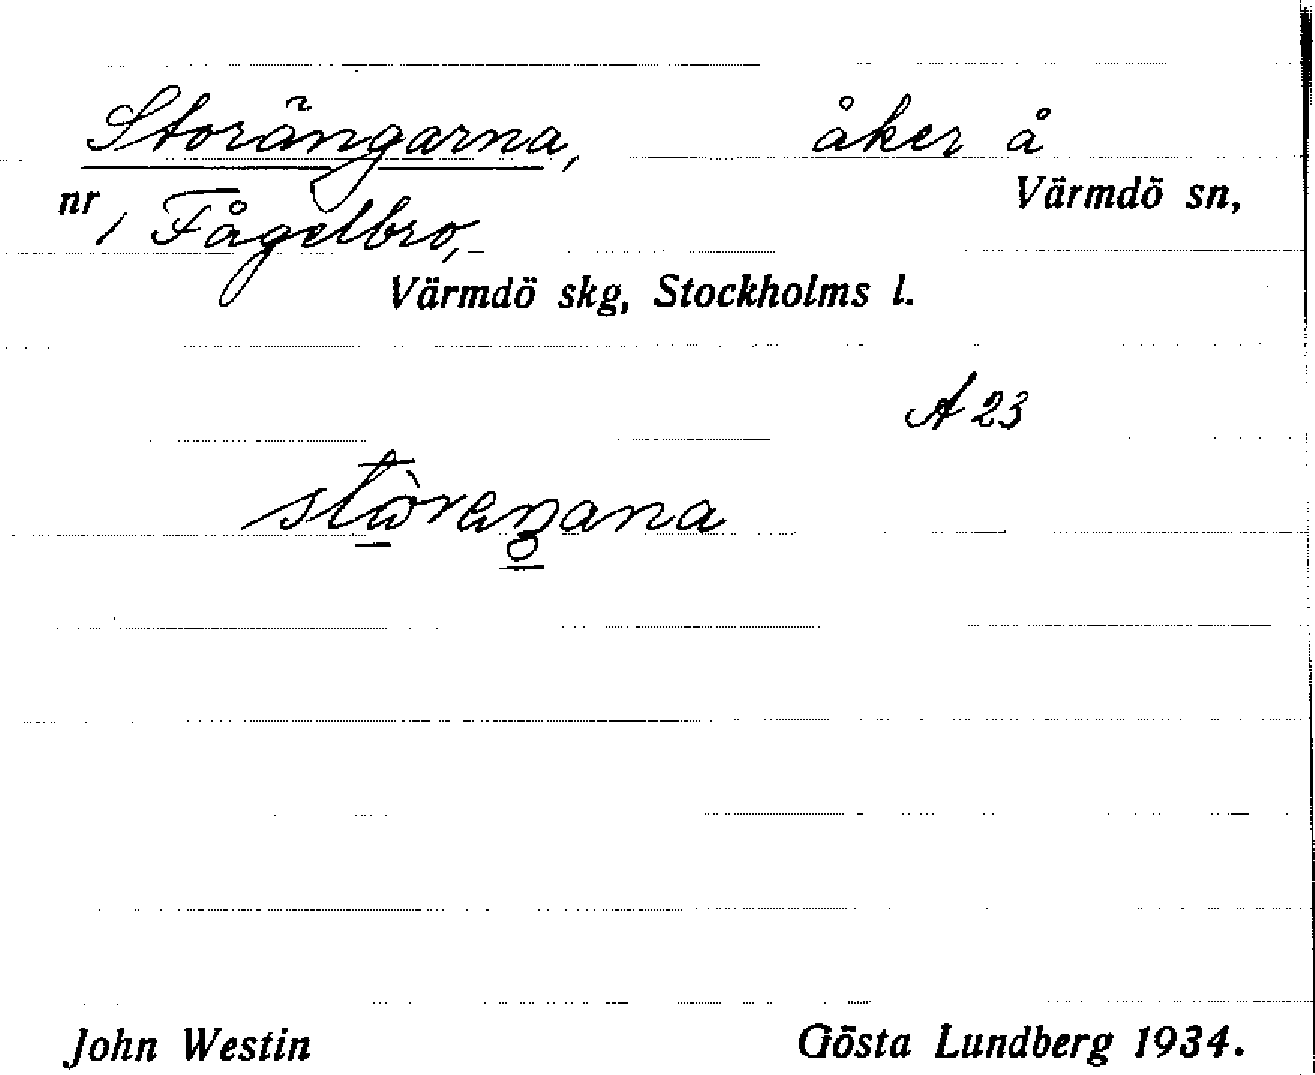 Storängarna, åker å
Värmdö sn,
nr 1 Fågelbro,
Värmdö skg, Stockholms l.
A 23
John Westin Gösta Lundberg 1934.